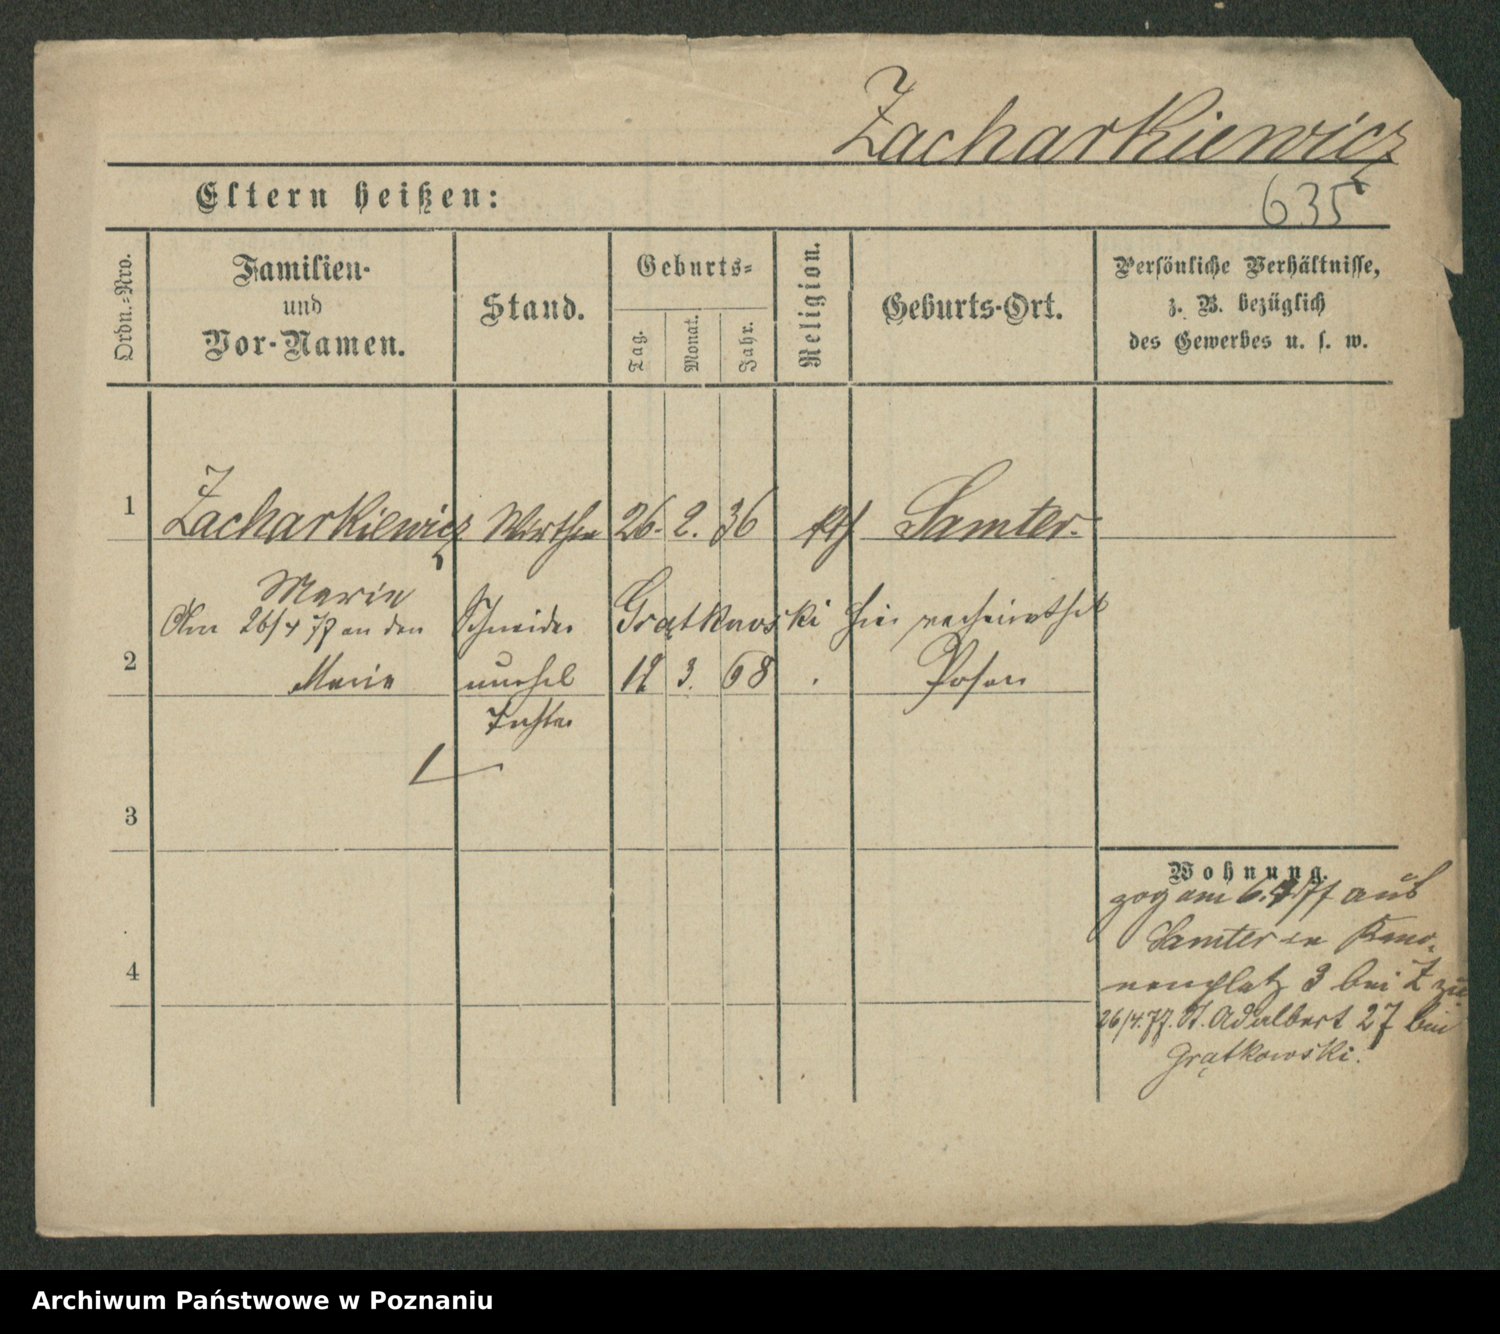 Zacharkiewicz
Eltern heißen:
635
Ordn.-Nro.
Familien-
und
Vor-Namen.
Stand.
Geburts-
Tag.
Monat.
Jahr.
Religion.
Geburts-Ort.
Persönliche Verhältnisse,
z. B. bezüglich
des Gewerbes u. s. w.
1 Zacharkiewicz Wirthin 26. 2. 36 kth Samter.
Marie
Am 26/4 77 an den Schneider Grątkowski hier verheirathet
2 Marie unehel 12 3. 68 Posen
Tochter
3
4
Wohnung.
zog am 6. 4 77 aus
Samter in Kano-
nenplatz 3 bei Z zu
26/4.77. St. Adalbert 27 bei
Grątkowski.
Archiwum Państwowe w Poznaniu